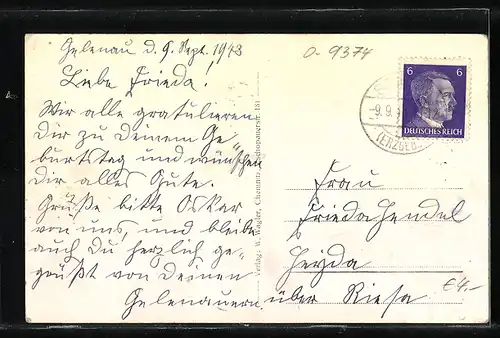 Gelenau d. 9. Sept. 1943
Liebe Frieda!
Wir alle gratulieren
Dir zu Deinem Ge-
burtstag und wünschen
dir alles Gute.
Grüße bitte Oskar
von uns, und bleibe
auch Du herzlich ge-
grüßt von Deinen
Gelenauern
Verlag: W. Wagler, Chemnitz, Zschopauerstr. 131
0-9374
6 6
DEUTSCHES REICH
-9.9.
(ERZGEB.
Frau
Frieda Hendel
Heyda
über Riesa
€4.-